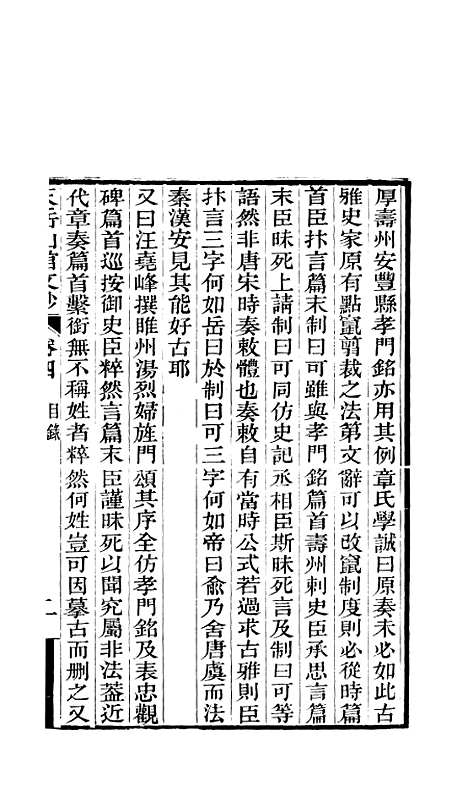 厚壽州安豐縣孝門銘亦用其例章氏學誠曰原奏未必如此古
雅史家原有點竄剪裁之法第文辭可以改竄制度則必從時篇
首臣抃言篇末制曰可雖與孝門銘篇首壽州刺史臣承思言篇
末臣昧死上請制曰可同仿史記丞相臣斯昧死言及制曰可等
語然非唐宋時奏敕體也奏敕自有當時公式若過求古雅則臣
抃言三字何如岳曰於制曰可三字何如帝曰俞乃舍唐虞而法
秦漢安見其能好古耶
又曰汪堯峰撰睢州湯烈婦旌門頌其序全仿孝門銘及表忠觀
碑篇首巡按御史臣粹然言篇末臣謹昧死以聞究屬非法蓋近
代章奏篇首繫銜無不稱姓者粹然何姓豈可因摹古而删之又
天岳山館文鈔 卷四 目錄 二